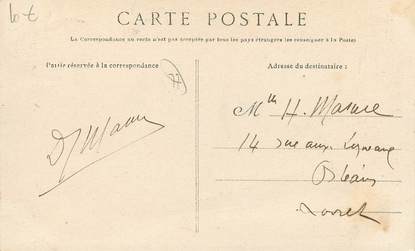 CARTE POSTALE
La Correspondance au verso n'est pas acceptée par tous les pays étrangers (se renseigner à la Poste)
Partie réservée à la correspondance
Adresse du destinataire :
H. Masure
14 rue aux
Orléans
Loiret